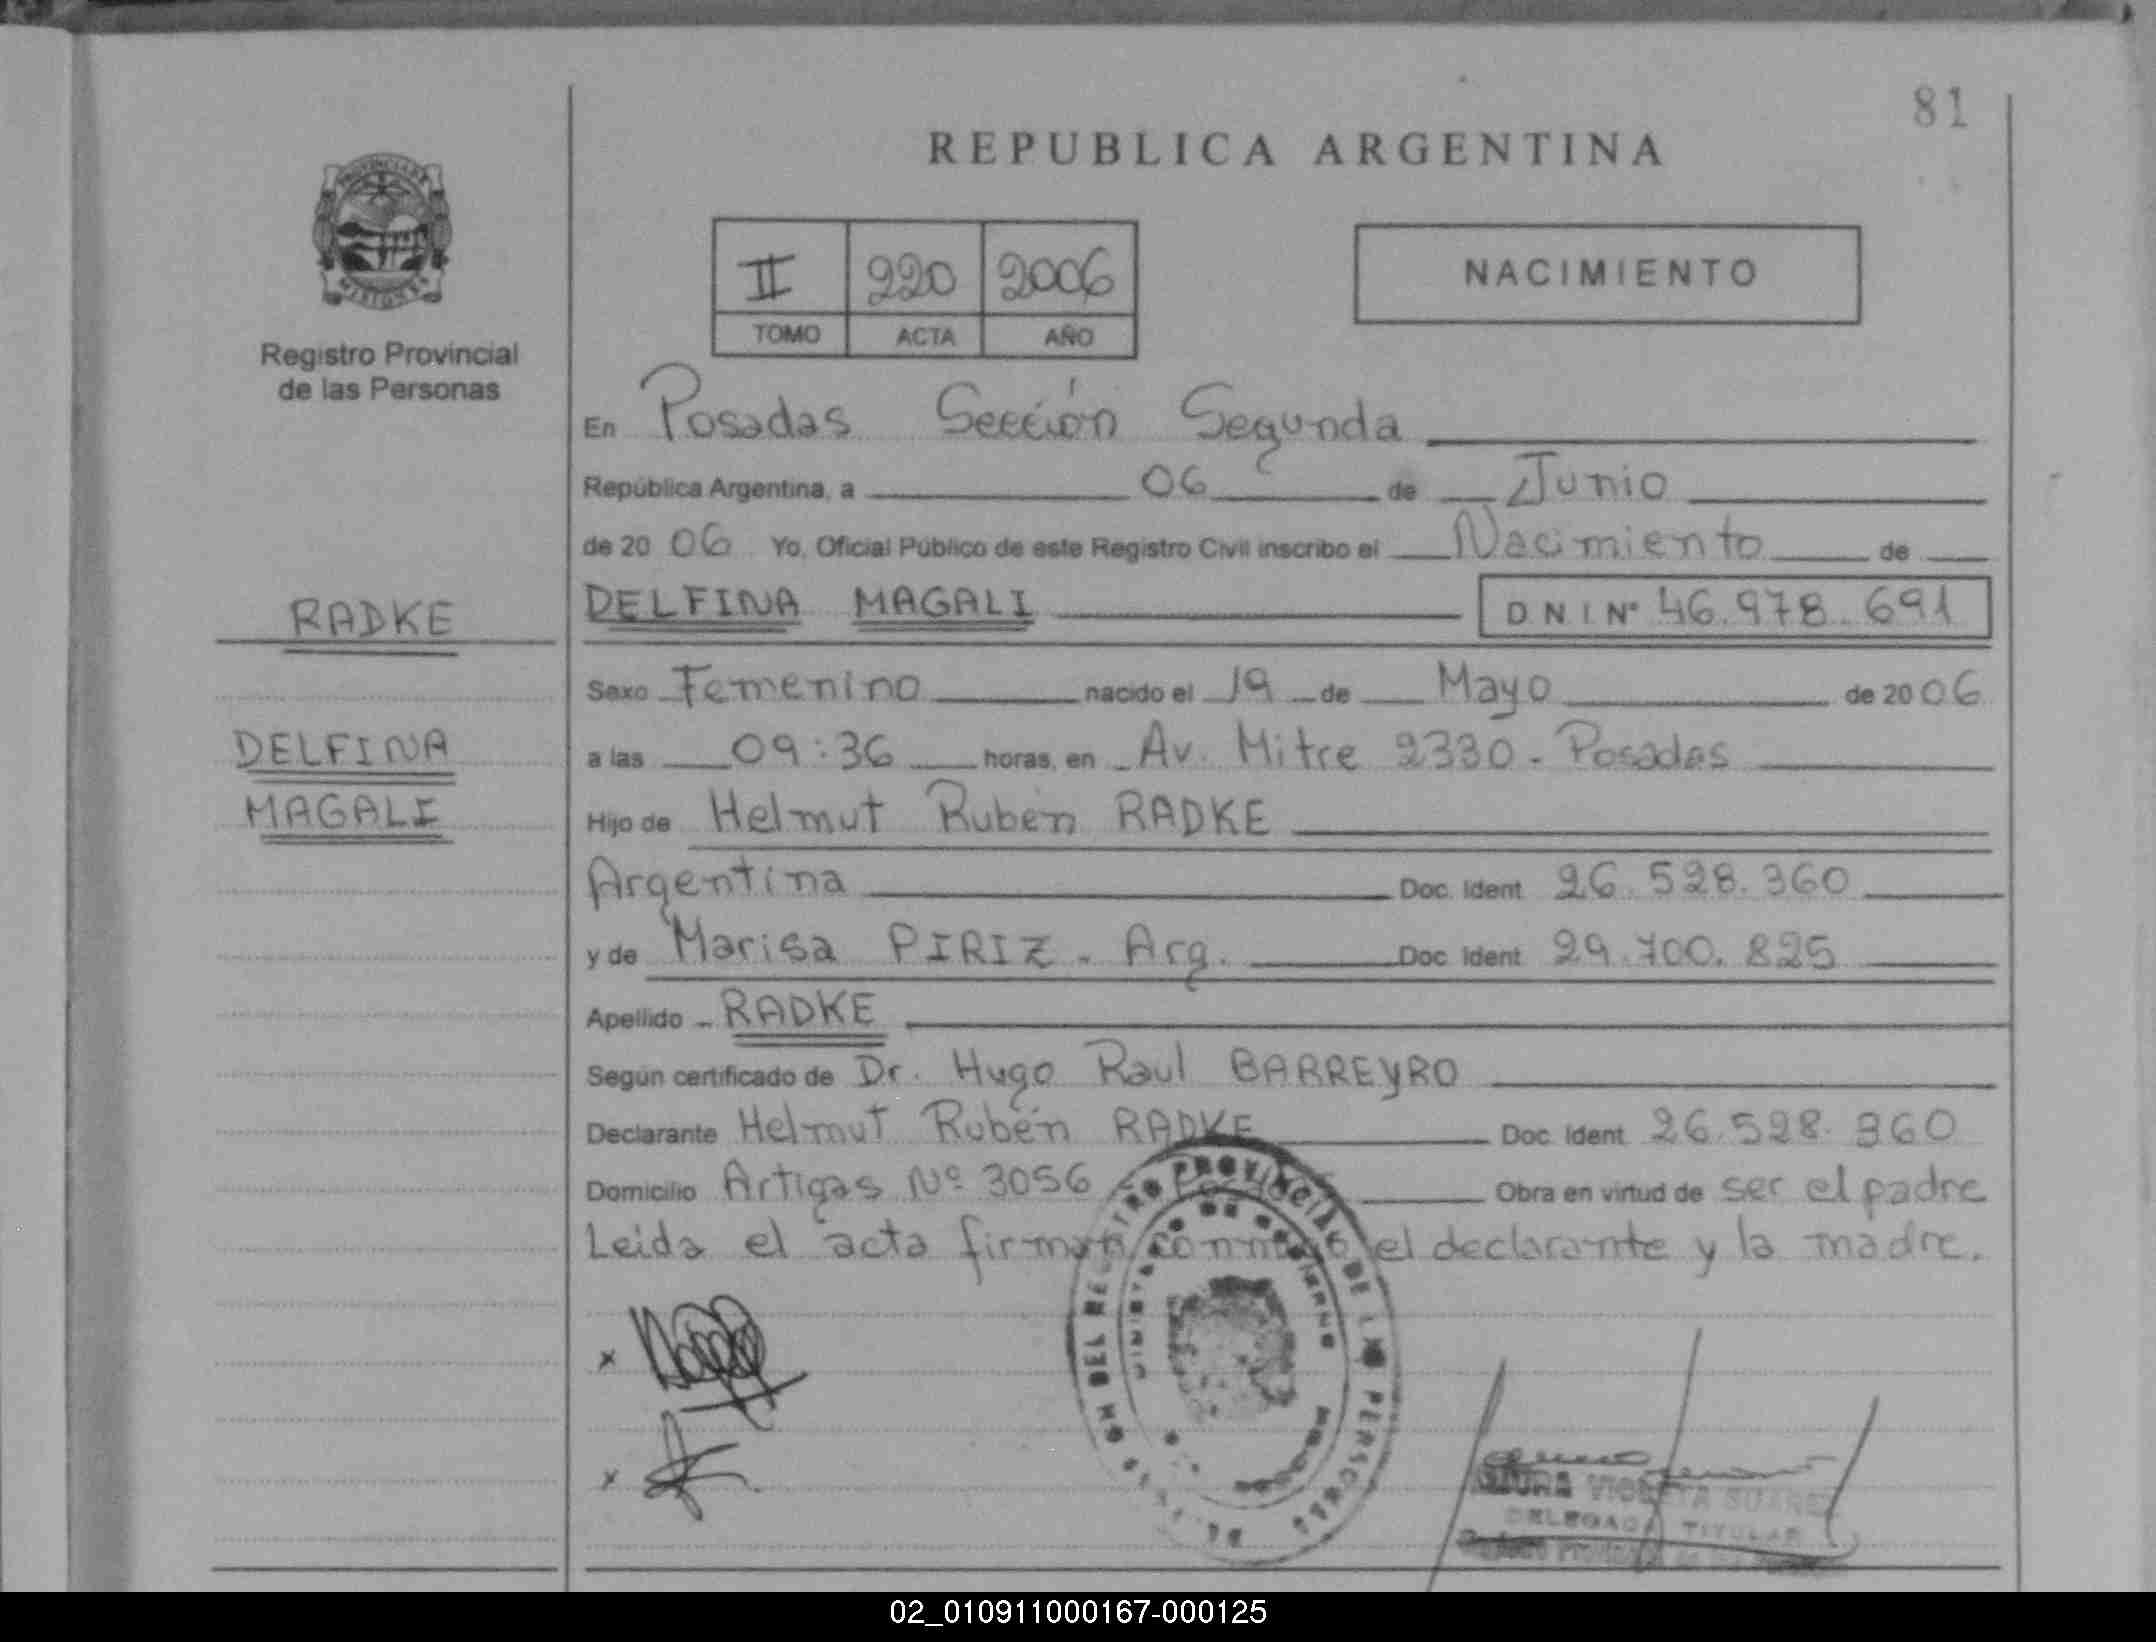 81
REPUBLICA ARGENTINA
II 220 2006
TOMO ACTA AÑO
NACIMIENTO
Registro Provincial
de las Personas
En Posadas Sección Segunda
República Argentina, a 06 de Junio
de 2006 Yo, Oficial Público de este Registro Civil inscribo el Nacimiento de
RADKE
DELFINA MAGALI D N I Nº 46.978.691
Sexo Femenino nacido el 19 de Mayo de 2006
DELFINA
MAGALI
a las 09:36 horas, en Av. Mitre 2330 - Posadas
Hijo de Helmut Rubén RADKE
Argentina Doc. Ident 26.528.360
y de Marisa PIRIZ - Arg. Doc Ident 29.700.825
Apellido RADKE
Según certificado de Dr. Hugo Raul BARREYRO
Declarante Helmut Rubén RADKE Doc Ident 26.528.360
Domicilio Artigas Nº 3056 Obra en virtud de ser el padre
Leida el acta firman conmigo el declarante y la madre.
DELEGADA TITULAR
02_010911000167-000125